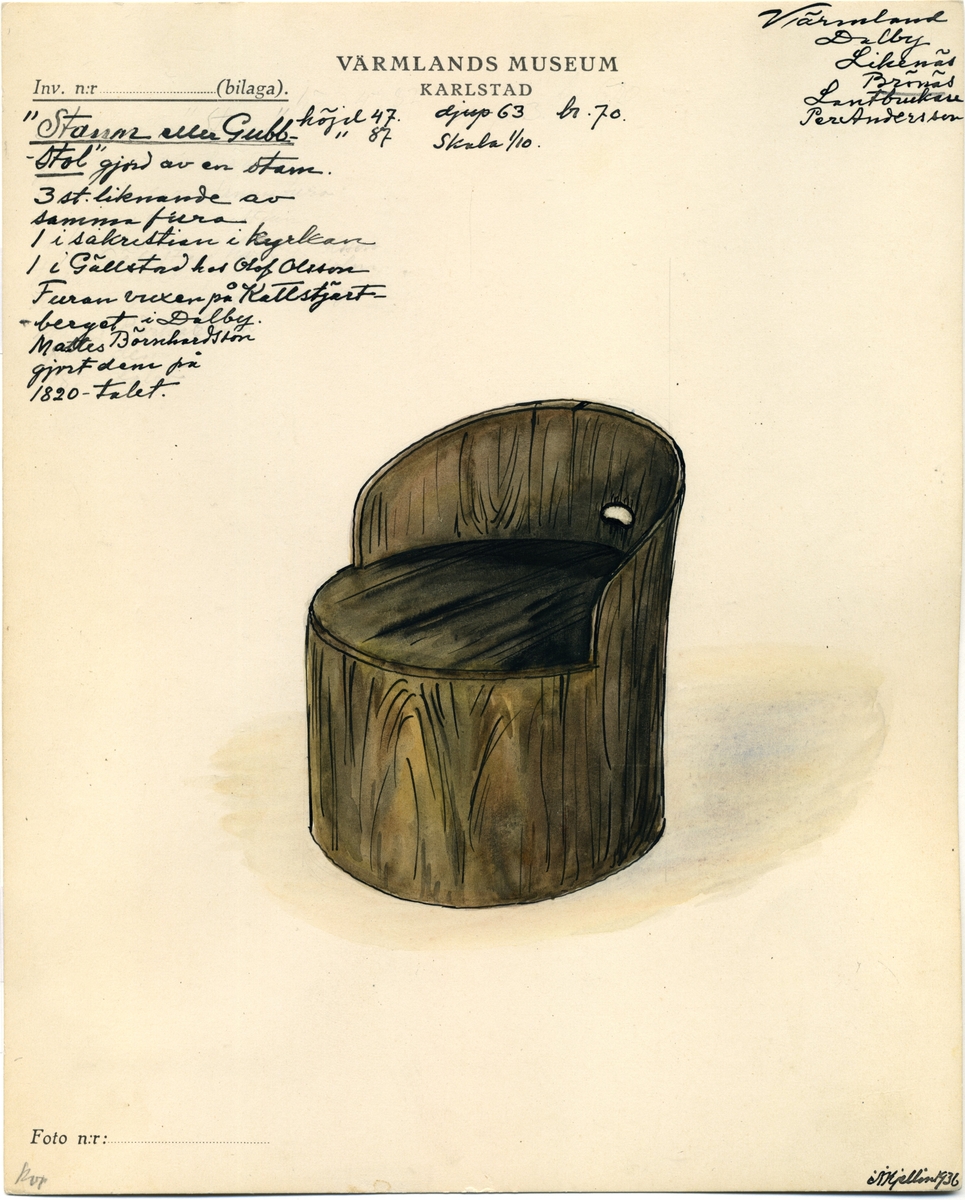 Värmland
Dalby
Likenäs
Brönäs
Lantbrukare
Per Andersson
VÄRMLANDS MUSEUM
KARLSTAD
Inv. n:r (bilaga).
"Stamm eller Gubb-
-Stol" gjord av en stam.
höjd 47. djup 63 br. 70.
" 87 Skala 1/10.
3 st. liknande av
samma fura
1 i sakristian i kyrkan
1 i Gällstad hos Olof Olsson
Furan vuxen på Kattstjärt-
-berget i Dalby.
Mattes Börnhardsson
gjort dem på
1820-talet.
Foto n:r:
Kjellin 1936